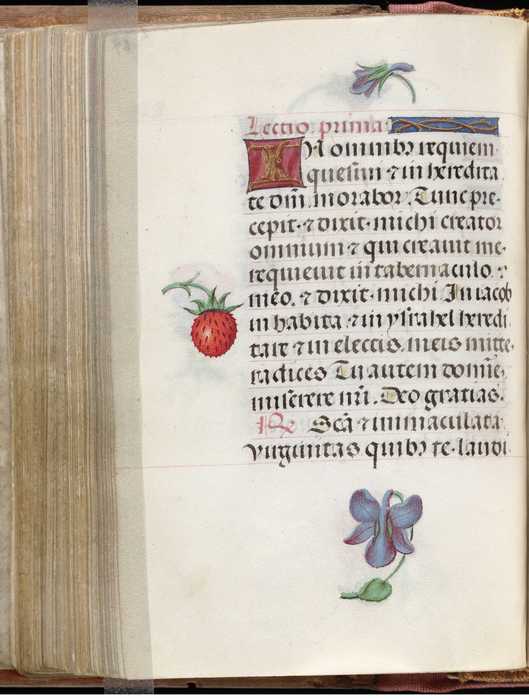 Lectio prima
In omnibꝫ requiem
quesiui ⁊ in heredita
te dn̄i. morabor. Tunc pre-
cepit. ⁊ dixit. michi creator
omnium ⁊ qui creauit me.
requieuit in tabernaculo.
meo. ⁊ dixit. michi In iacob
in habita ⁊ in ysrahel heredi
tare ⁊ in electis. meis mitte.
radices Tu autem domine.
miserere nr̄i. Deo gratias.
R̷ Scā ⁊ immaculata
virginitas quibꝫ te. laudi